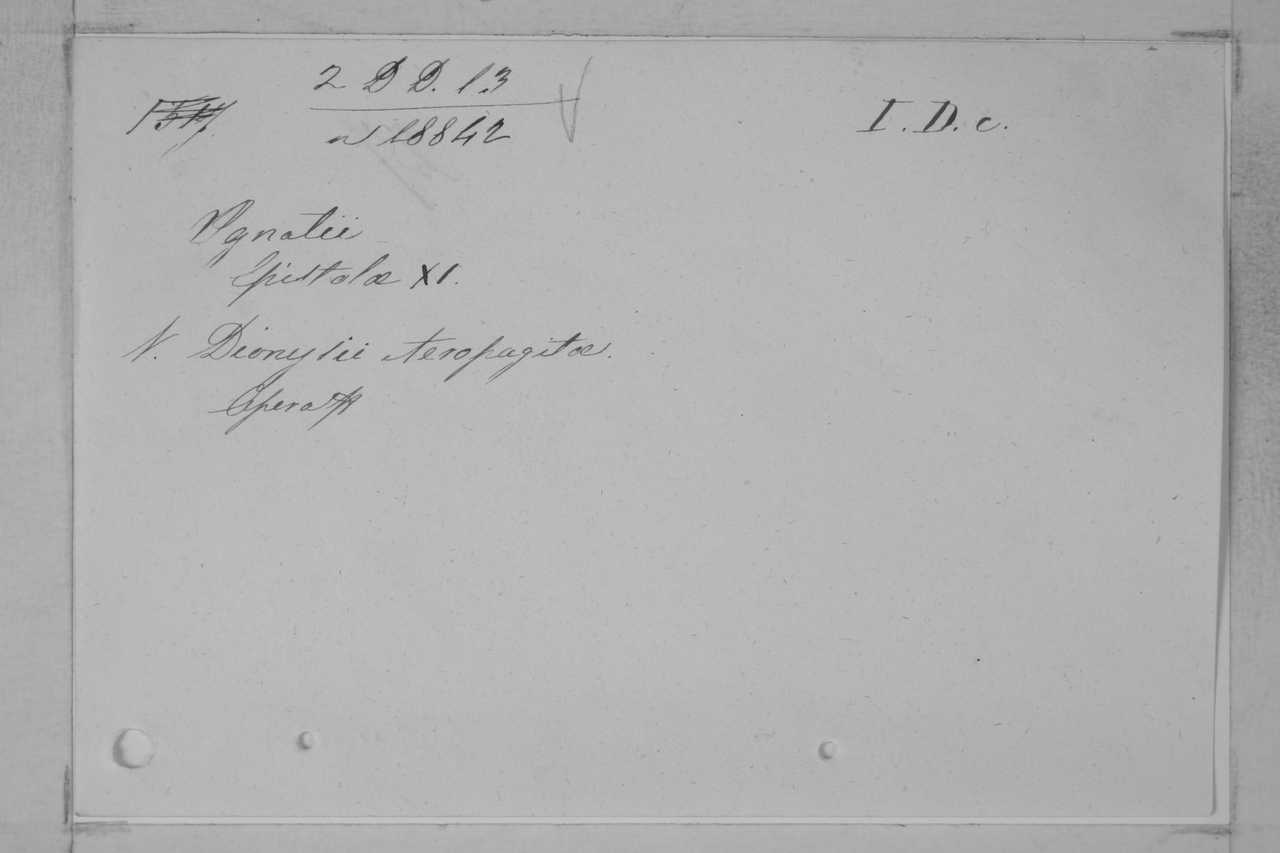 2 D D. l.3
I. D. c.
n 18842
Ignatii
Epistolæ XI.
V. Dionysii Areopagitæ.
Opera